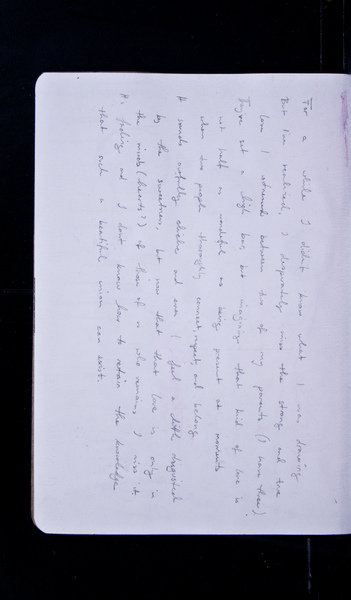 For a while I didn't know what I was drawing
But I've realized, I desperately miss the strong and true
love I witnessed between two of my parents (I have three)
They've set a high bar, but imagining that kind of love is
not half as wonderful as being present at moments
when two people thoroughly connect, respect, and belong.
It sounds awfully cliche and even I feel a little disgusted
by the sweetness, but now that that love is only in
the minds (hearts?) of those of us who remain, I miss it.
It's fading and I don't know how to retain the knowledge
that such a beautiful union can exist.